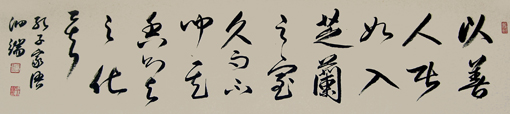 以善
人居
如入
芝蘭
之室
久而不
聞其
香即与
之化
矣
孔子家语